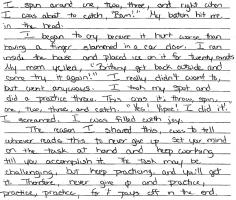 I spun around one, two, three, and right when
I was about to catch, "Bam!" My baton hit me
in the head.
I began to cry because it hurt worse than
having a finger slammed in a car door. I ran
inside the house and placed ice on it for twenty minutes.
My mom yelled, "Brittany get back outside and
come try it again!!" I really didn't want to,
but went anyways. I took my spot and
did a practice throw. This was it, throw, spin,
one, two, three and catch. "Yes! Yipee! I did it".
I screamed. I was filled with joy.
The reason I shared this, was to tell
whoever reads this to never give up. Set your mind
on the task at hand and keep working
till you accomplish it. The task may be
challenging, but keep practicing, and you'll get
it. Therefore, never give up and practice,
practice, practice, for it pays off in the end.